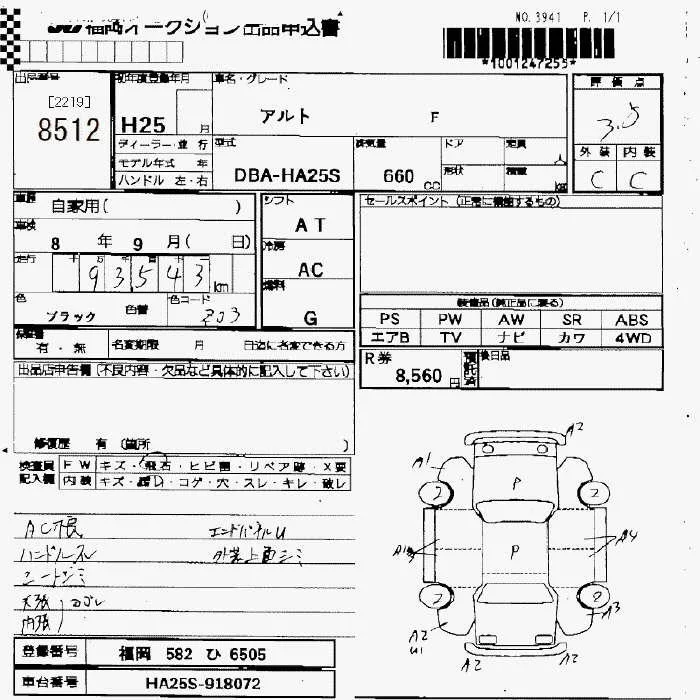 福岡オークション出品申込書
NO. 3941 P. 1/1
*1001247255*
出品番号
[2219]
8512
初年度登録年月
H25 月
車名・グレード
アルト F
評価点
3.5
外装 内装
C C
ディーラー・並行
モデル年式 年
ハンドル 左・右
型式
DBA-HA25S
排気量
660 cc
ドア
形状
定員
人
積載
kg
車歴
自家用( )
車検
8 年 9 月( 日)
走行
93543 km
色
ブラック
色替
色コード
ZJ3
シフト
AT
冷房
AC
燃料
G
セールスポイント (正常に機能するもの)
装備品(純正品に限る)
PS PW AW SR ABS
エアB TV ナビ カワ 4WD
保証書
有・無
名変期限 月 日迄に名変できる方
R券
8,560 円
預託済
後日品
出品店申告欄(不良内容・欠品など具体的に記入して下さい)
修復歴 有 (箇所 )
検査員記入欄
FW キズ・飛石・ヒビ割・リペア跡・X要
内装 キズ・コゲ・穴・スレ・キレ・破レ
エンドパネルU
ハンドルスレ
シートシミ
天張
内張
ヨゴレ
A2
A1
P
P
A4
A3
A2
U1
A2
A2
登録番号 福岡 582 ひ 6505
車台番号 HA25S-918072